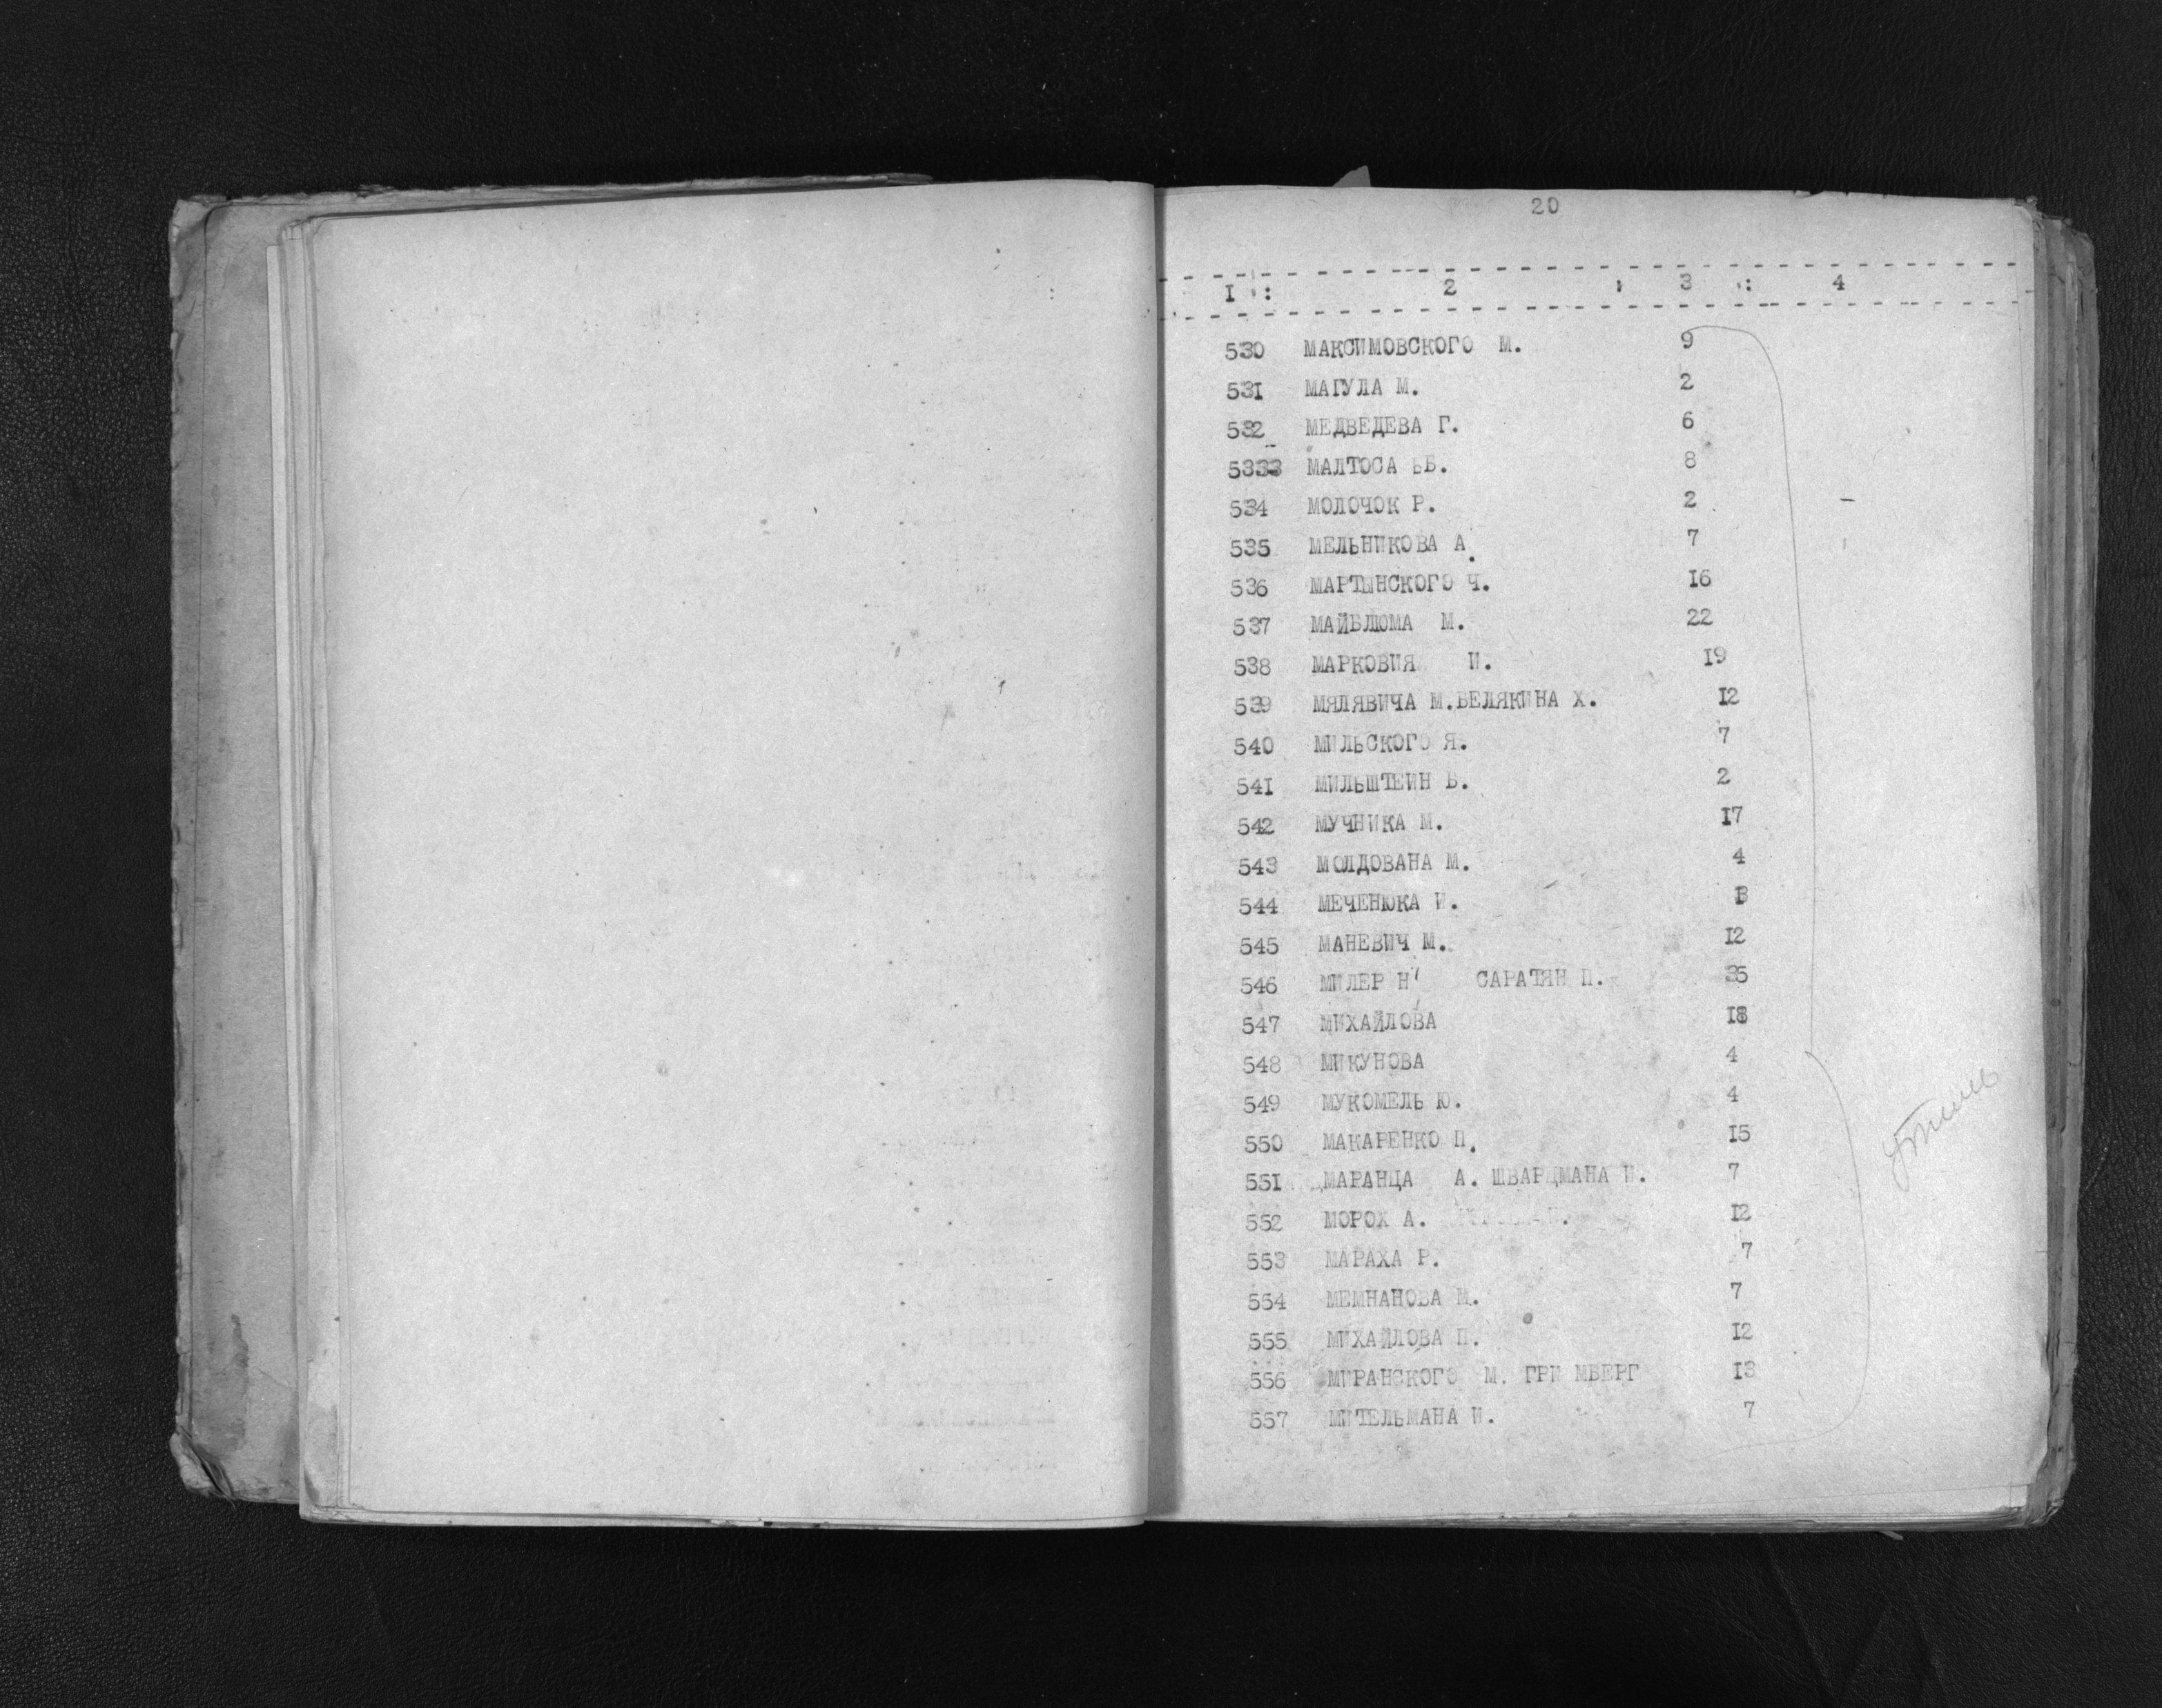 20
I : 2 : 3 : 4
530 МАКСИМОВСКОГО М. 9
531 МАГУЛА М. 2
532 МЕДВЕДЕВА Г. 6
5333 МАЛТОСА ЬБ. 8
534 МОЛОЧОК Р. 2 -
535 МЕЛЬНИКОВА А. 7
536 МАРТЫНСКОГО Ч. 16
537 МАЙБЛЮМА М. 22
538 МАРКОВИЯ И. 19
539 МЯЛЯВИЧА М.БЕЛЯКИНА Х. 12
540 МИЛЬСКОГО Я. 7
541 МИЛЬШТЕИН Б. 2
542 МУЧНИКА М. 17
543 МОЛДОВАНА М. 4
544 МЕЧЕНЮКА И.
545 МАНЕВИЧ М. 12
546 МИЛЕР Н САРАТЯН П. 35
547 МИХАЙЛОВА 18
548 МИКУНОВА 4
549 МУКОМЕЛЬ Ю. 4
550 МАКАРЕНКО П. 15
551 МАРАНЦА А. ШВАРЦМАНА И. 7
552 МОРОХ А. 12
553 МАРАХА Р. 7
554 МЕМНАНОВА М. 7
555 МИХАЙЛОВА П. 12
556 МИРАНСКОГО М. ГРИ МБЕРГ 13
557 МИТЕЛЬМАНА И. 7